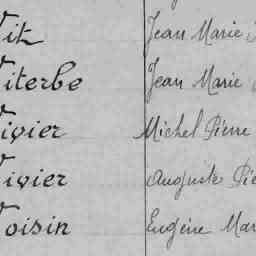 Vit Jean Marie
Viterbe Jean Marie
Vivier Michel Pierre
Vivier Auguste
Voisin Eugène